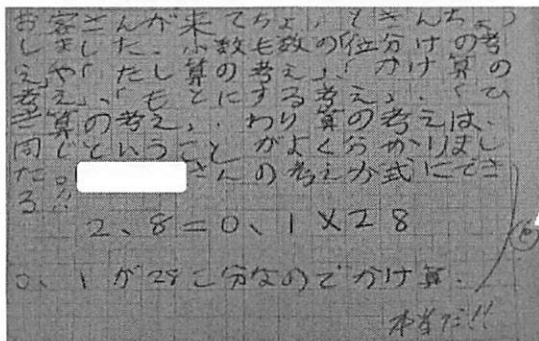 お客さんが来てちょっときんちょう
しました。小数も数の「位分けの考
え」や「たし算の考え」、「かけ算の
考え」、「もとにする考え」、「ひ
き算の考え」、わり算の考えは、
同じということがよく分かりまし
た。!! さんの考えが式にでき
る
2、8=0、1×28
0、1が28こ分なのでかけ算.
本当だ!!